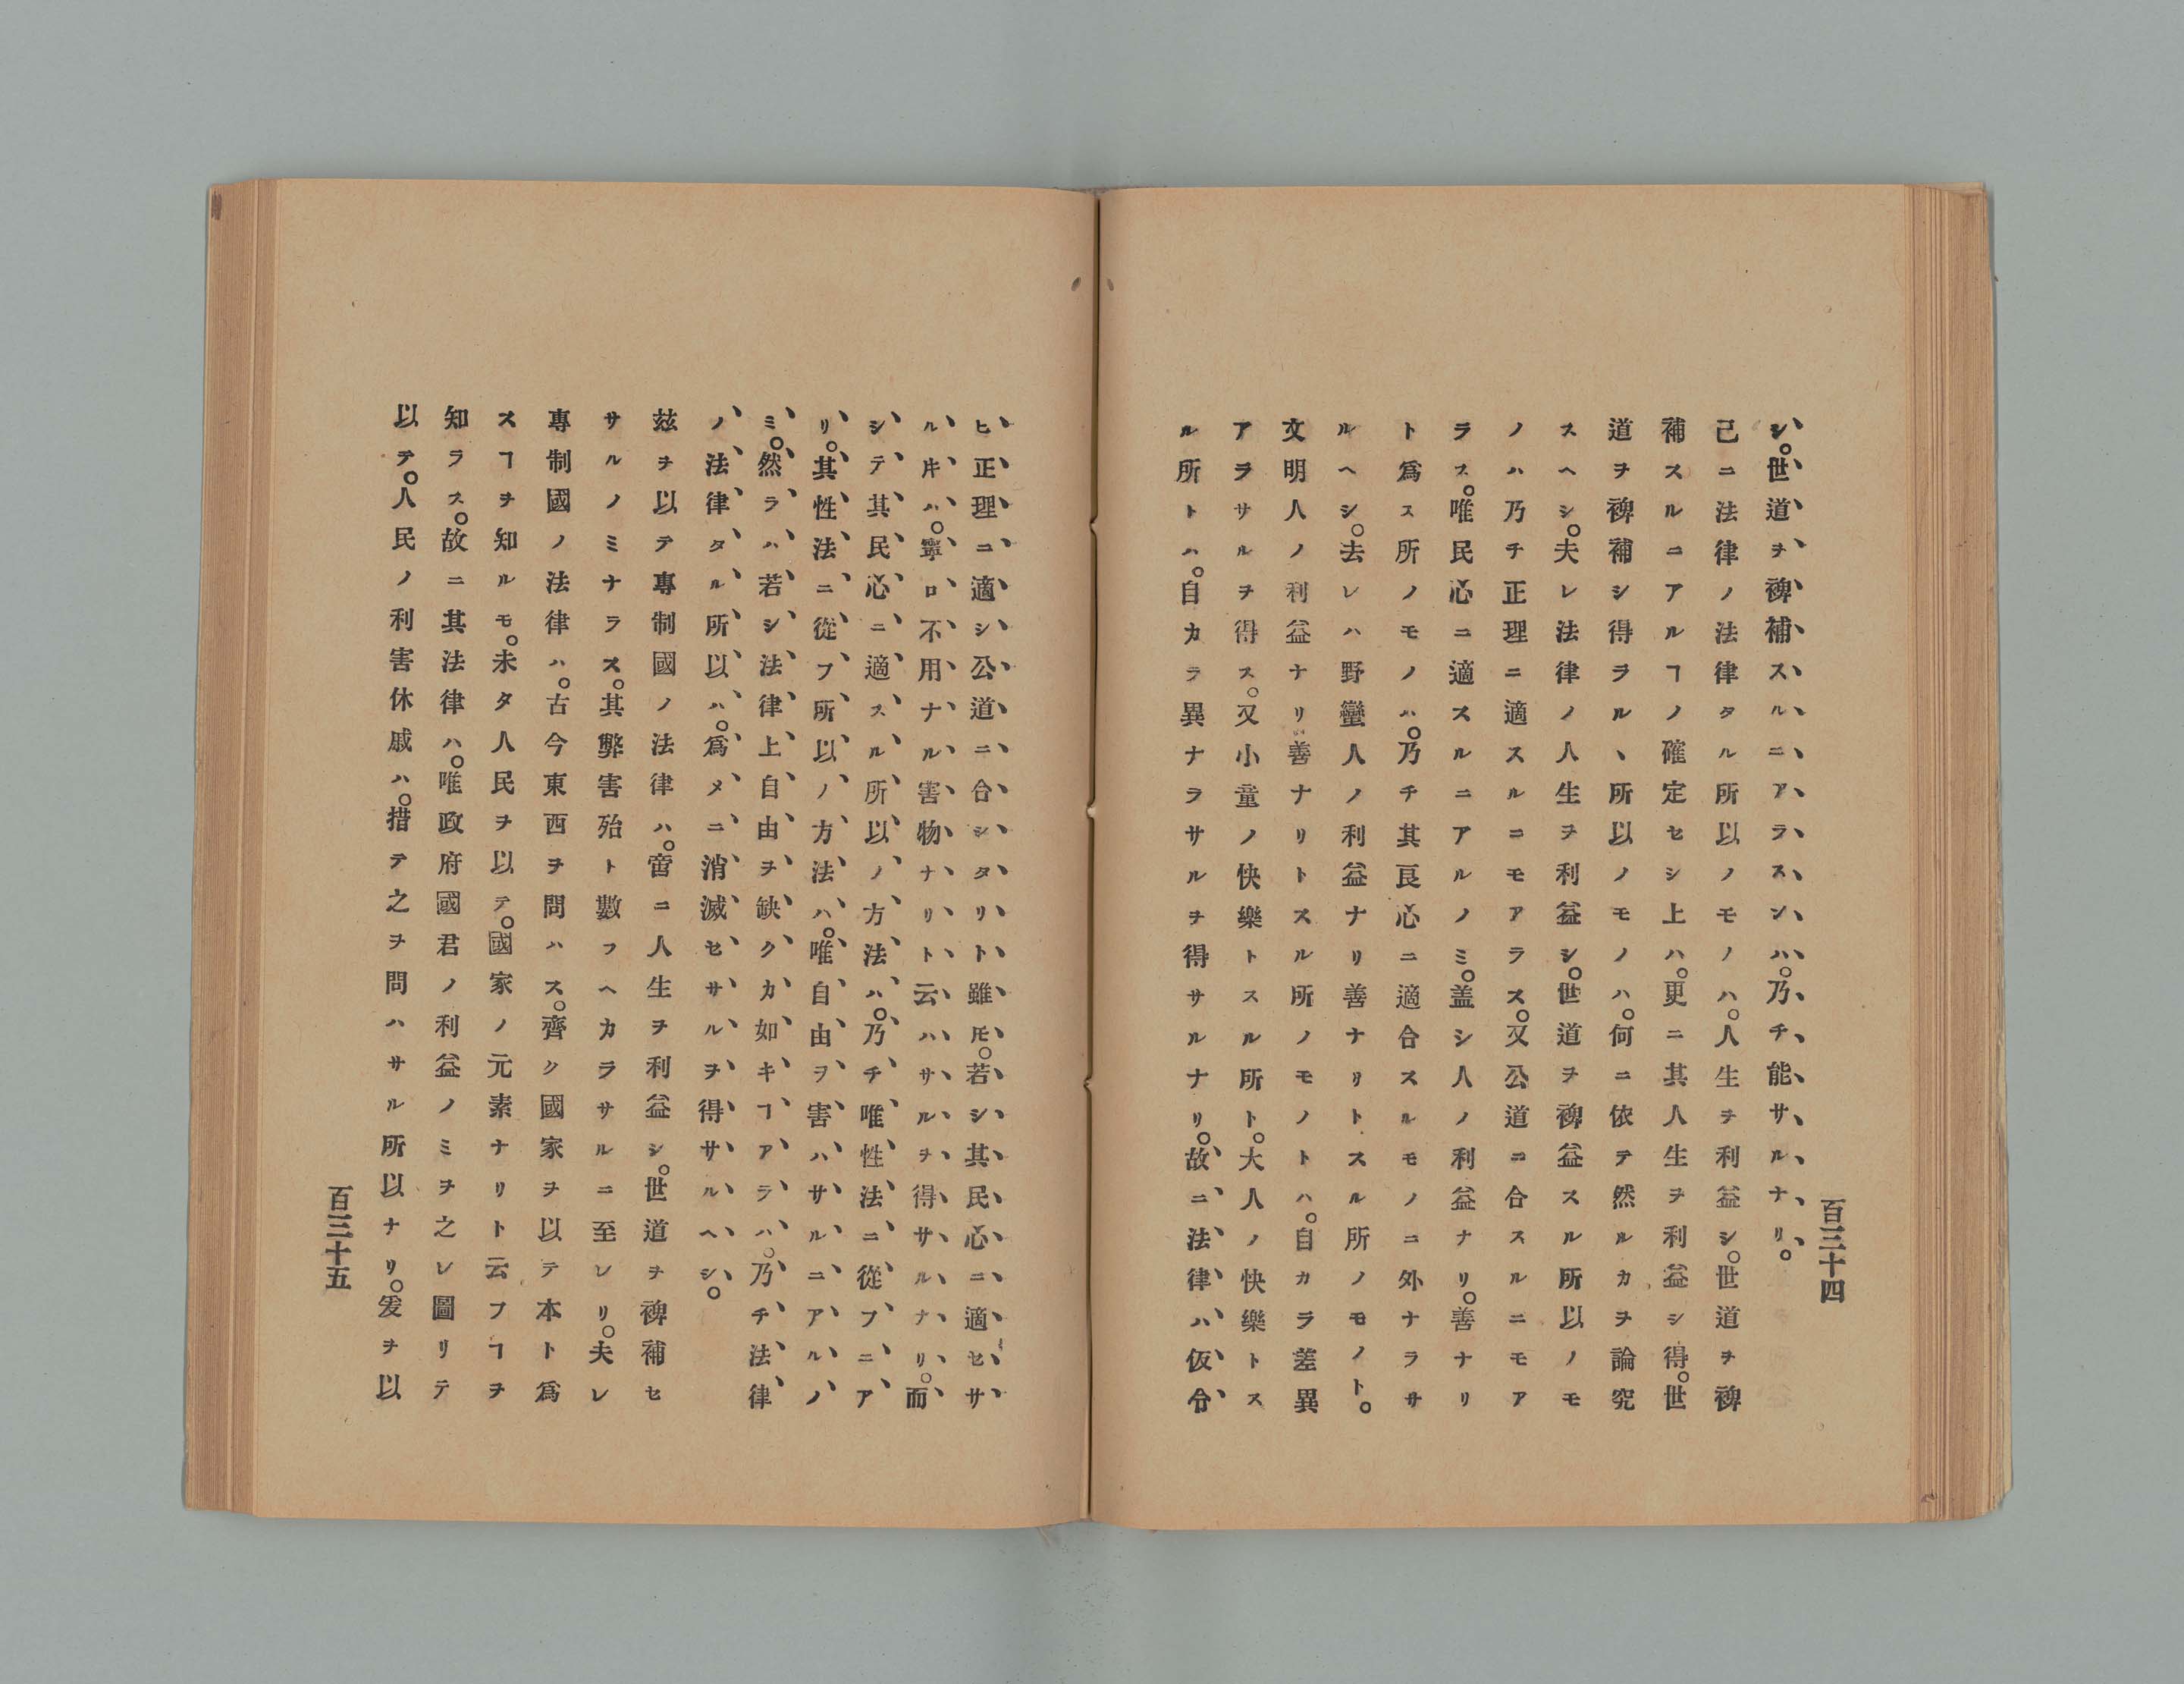 シ。世道ヲ裨補スルニアラスンハ。乃チ能サルナリ。
己ニ法律ノ法律タル所以ノモノハ。人生ヲ利益シ。世道ヲ裨
補スルニアルヿノ確定セシ上ハ。更ニ其人生ヲ利益シ得。世
道ヲ裨補シ得ラルヽ所以ノモノハ。何ニ依テ然ルカヲ論究
スヘシ。夫レ法律ノ人生ヲ利益シ。世道ヲ裨益スル所以ノモ
ノハ乃チ正理ニ適スルニモアラス。又公道ニ合スルニモア
ラス。唯民心ニ適スルニアルノミ。盖シ人ノ利益ナリ。善ナリ
ト爲ス所ノモノハ。乃チ其良心ニ適合スルモノニ外ナラサ
ルヘシ。去レハ野蠻人ノ利益ナリ善ナリトスル所ノモノト。
文明人ノ利益ナリ善ナリトスル所ノモノトハ。自カラ差異
アラサルヲ得ス。又小童ノ快樂トスル所ト。大人ノ快樂トス
ル所トハ。自カラ異ナラサルヲ得サルナリ。故ニ法律ハ仮令
百三十四
ヒ正理ニ適シ公道ニ合シタリト雖𪜈。若シ其民心ニ適セサ
ル片ハ。寧ロ不用ナル害物ナリト云ハサルヲ得サルナリ。而
シテ其民心ニ適スル所以ノ方法ハ。乃チ唯性法ニ從フニア
リ。其性法ニ從フ所以ノ方法ハ。唯自由ヲ害ハサルニアルノ
ミ。然ラハ若シ法律上自由ヲ缺クカ如キヿアラハ。乃チ法律
ノ法律タル所以ハ。爲メニ消滅セサルヲ得サルヘシ。
玆ヲ以テ專制國ノ法律ハ。啻ニ人生ヲ利益シ。世道ヲ裨補セ
サルノミナラス。其弊害殆ト數フヘカラサルニ至レリ。夫レ
專制國ノ法律ハ。古今東西ヲ問ハス。齊ク國家ヲ以テ本ト爲
スヿヲ知ルモ。未タ人民ヲ以テ。國家ノ元素ナリト云フヿヲ
知ラス。故ニ其法律ハ。唯政府國君ノ利益ノミヲ之レ圖リテ
以テ。人民ノ利害休戚ハ。措テ之ヲ問ハサル所以ナリ。爰ヲ以
百三十五